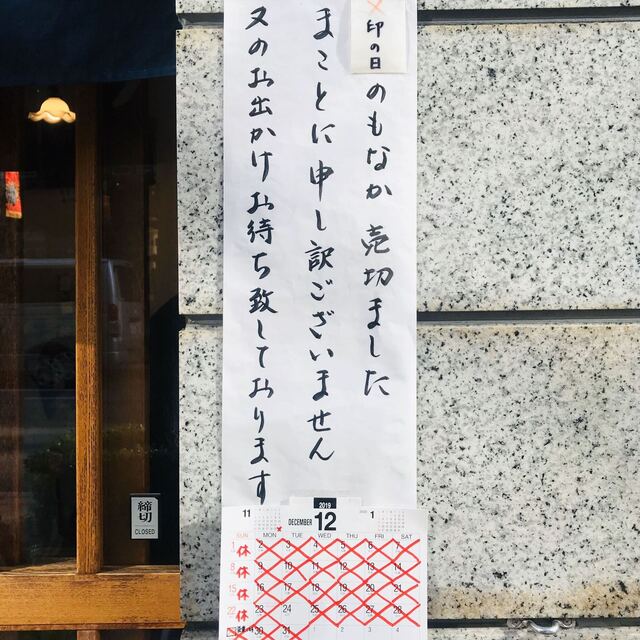 ×印の日のもなか 売切ました
まことに申し訳ございません
又のお出かけお待ち致しております
締切
CLOSED
11
2019
DECEMBER 12
1
SUN MON TUE WED THU FRI SAT
1 休 2 3 4 5 6 7
8 休 9 10 11 12 13 14
15 休 16 17 18 19 20 21
22 休 23 24 25 26 27 28
30 31 1 2 3 4